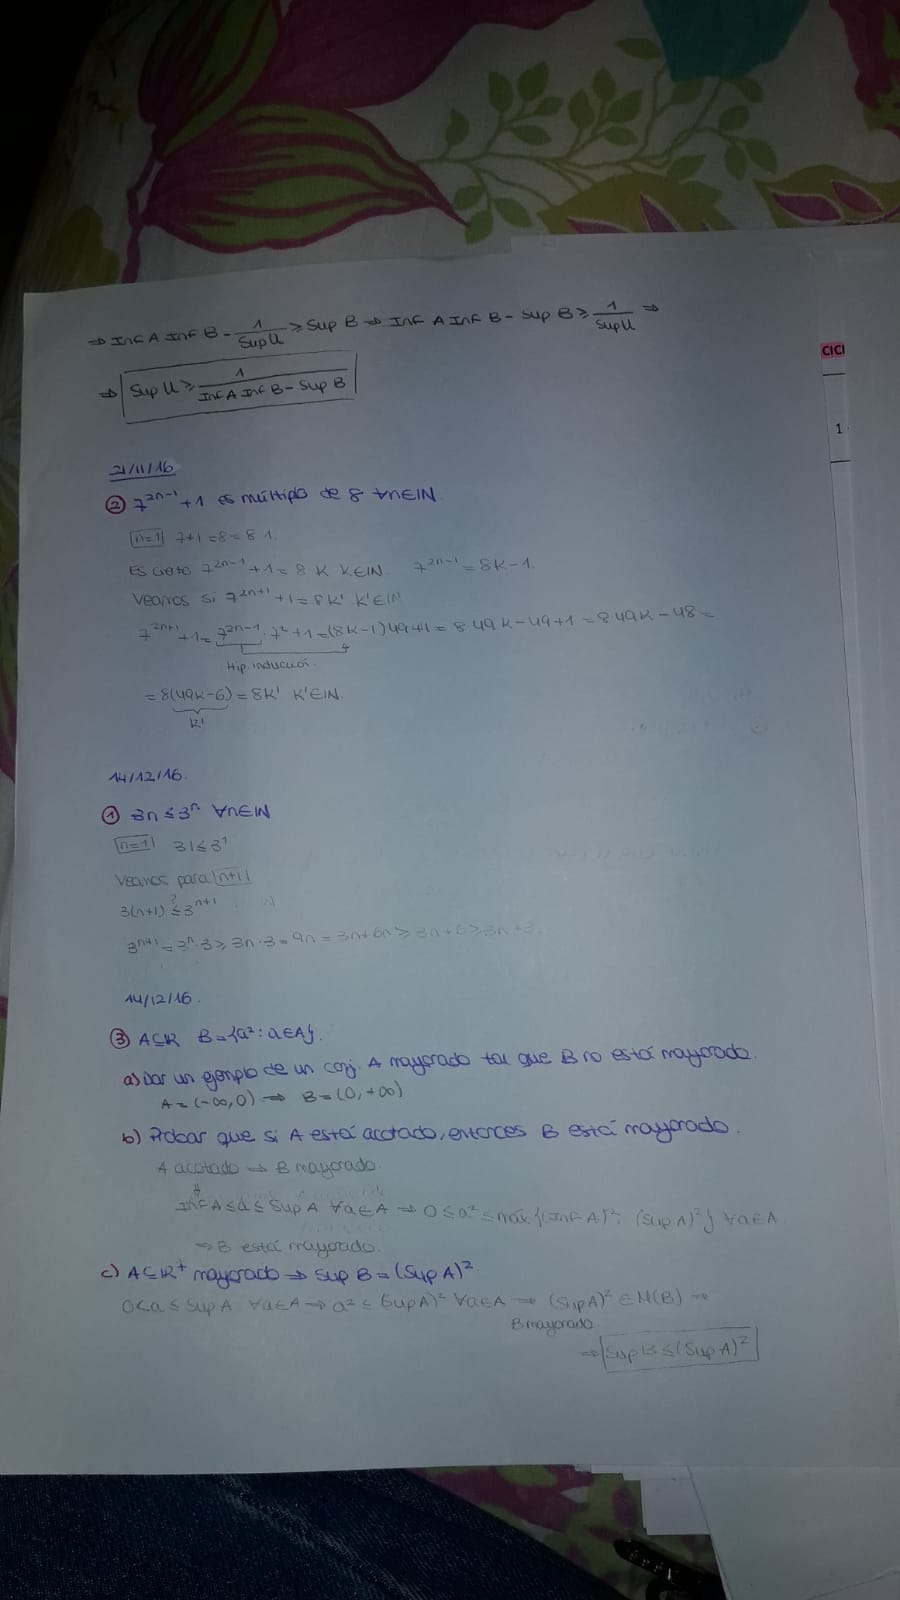 ⇒ Inf A Inf B - 1/Sup U ≥ Sup B ⇒ Inf A Inf B - Sup B ≥ 1/Sup U ⇒
⇒ Sup U ≥ 1/(Inf A Inf B - Sup B)
CICI
1
21/11/16
② 7^{2n-1}+1 es múltiplo de 8 ∀n∈IN
n=1 7+1=8=8·1.
Es cierto 7^{2n-1}+1=8·K K∈IN. 7^{2n-1}=8K-1.
Veamos si 7^{2n+1}+1=8K' K'∈IN
7^{2n+1}+1=7^{2n-1}·7²+1=(8K-1)49+1=8·49K-49+1=8·49K-48=
Hip. inducción.
=8(49K-6)=8K' K'∈IN.
K'
14/12/16.
① 3n≤3ⁿ ∀n∈IN
n=1 3·1≤3¹
Veamos para n+1
3(n+1) ≤? 3^{n+1}
3^{n+1}=3ⁿ·3≥3n·3=9n=3n+6n≥3n+6≥3n+3.
14/12/16.
③ A⊆IR B={a²:a∈A}.
a) Dar un ejemplo de un conj. A mayorado tal que B no está mayorado.
A=(-∞,0) ⇒ B=(0,+∞)
b) Probar que si A está acotado, entonces B está mayorado.
A acotado ⇒ B mayorado.
⇓
Inf A≤a≤Sup A ∀a∈A ⇒ 0≤a²≤máx{(Inf A)², (Sup A)²} ∀a∈A
⇒ B está mayorado.
c) A⊆IR⁺ mayorado ⇒ Sup B=(Sup A)².
0<a≤Sup A ∀a∈A ⇒ a²≤(Sup A)² ∀a∈A ⇒ (Sup A)²∈M(B) ⇒
B mayorado.
⇒ Sup B≤(Sup A)²